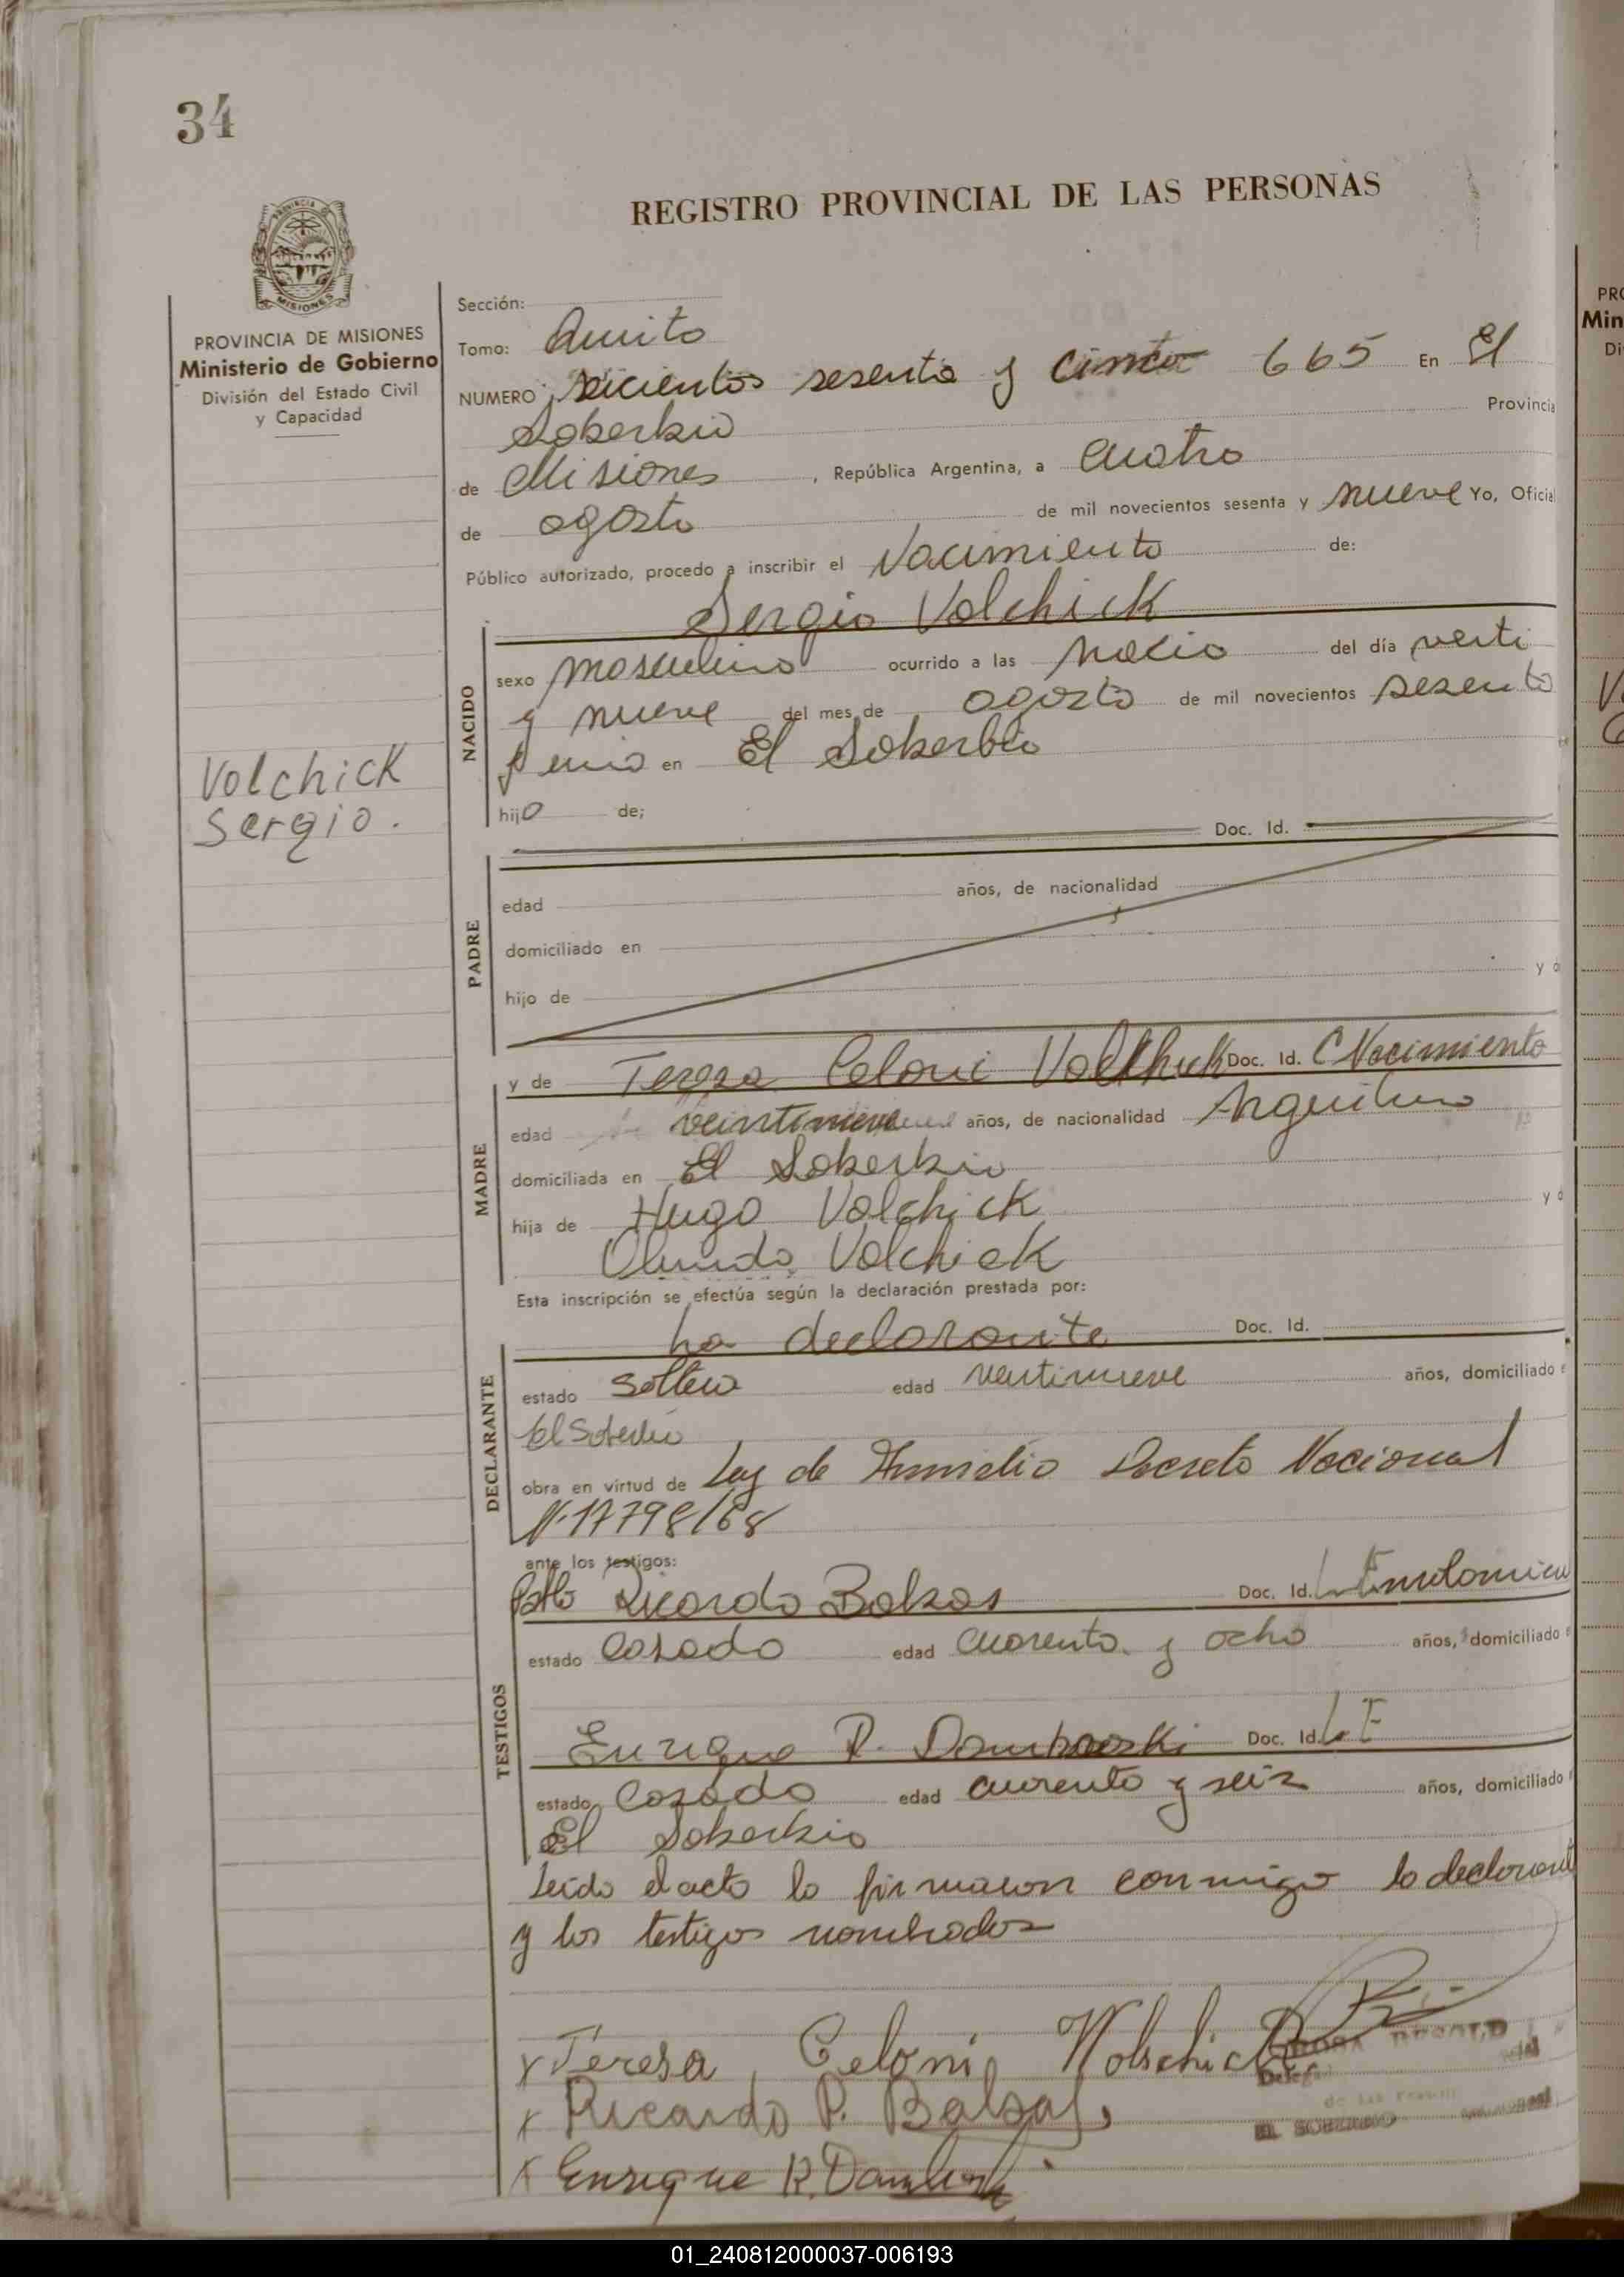 34
REGISTRO PROVINCIAL DE LAS PERSONAS
PROVINCIA DE MISIONES
Ministerio de Gobierno
División del Estado Civil
y Capacidad
Sección:
Tomo: Quinto
NUMERO seicientos sesenta y cinco 665 En El
Soberbio Provincia
de Misiones , República Argentina, a cuatro
de agosto de mil novecientos sesenta y nueve Yo, Oficial
Público autorizado, procedo a inscribir el Nacimiento de:
Sergio Volchick
NACIDO
sexo masculino ocurrido a las del día
y nueve del mes de agosto de mil novecientos sesenta
en El Soberbio
hijo de;
Volchick
Sergio.
Doc. Id.
PADRE
edad años, de nacionalidad
domiciliado en
hijo de y d
MADRE
y de Teresa Celoni Doc. Id. C Nacimiento
edad veintinueve años, de nacionalidad Argentina
domiciliada en El Soberbio
hija de Hugo Volchick y d
Volchick
Esta inscripción se efectúa según la declaración prestada por:
La declarante Doc. Id.
DECLARANTE
estado soltera edad ventinueve años, domiciliado
El Soberbio
obra en virtud de Ley de Decreto Nacional
N. 17798/68
ante los testigos:
Ricardo Balsas Doc. Id.
TESTIGOS
estado Casado edad cuarenta y ocho años, domiciliado
Enrique R. Doc. Id. L E
estado Casado edad cuarenta y seis años, domiciliado
El Soberbio
Leido el acto lo firmaron conmigo la declarante
y los testigos nombrados
x Teresa Celoni Wolschick
x Ricardo P. Balsas
x Enrique R.
ROSA
EL SOBERBIO
01_240812000037-006193